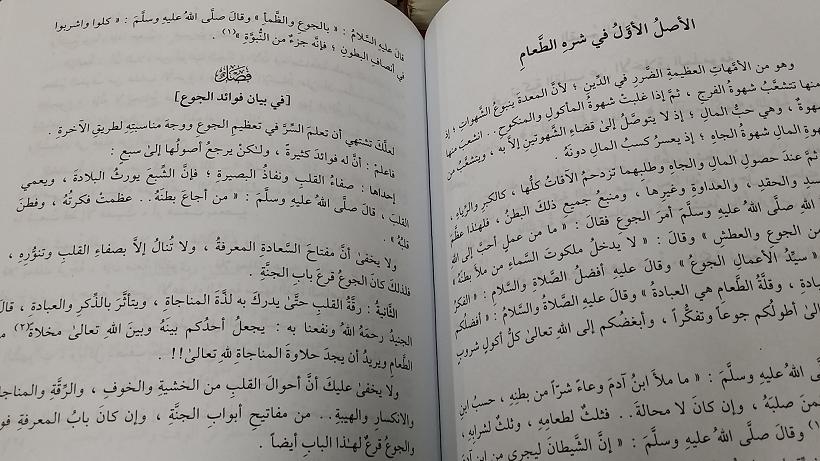 الأصلُ الأوَّلُ في شرهِ الطَّعامِ
وهو من الأمَّهاتِ العظيمةِ الضَّررِ في الدِّينِ ؛ لأنَّ المعدةَ ينبوعُ الشَّهواتِ ؛ إذ
منها تتشعَّبُ شهوةُ الفرجِ ، ثمَّ إذا غلبتْ شهوةُ المأكولِ والمنكوحِ . . انشعبَ منها
شهوةُ المالِ ، وهي حبُّ المالِ ؛ إذ لا يتوصَّلُ إلى قضاءِ الشَّهوتينِ إلاَّ به ، ويتشعَّبُ من
شهوةِ المالِ شهوةُ الجاهِ ؛ إذ يعسرُ كسبُ المالِ دونَهُ .
ثمَّ عندَ حصولِ المالِ والجاهِ وطلبِهما تزدحمُ الآفاتُ كلُّها ، كالكبرِ والرِّياءِ ،
والحسدِ والحقدِ ، والعداوةِ وغيرِها ، ومنبعُ جميعِ ذلكَ البطنُ ، فلهذا عظَّمَ
اللهِ صلَّى اللهُ عليهِ وسلَّمَ أمرَ الجوعِ فقالَ : « ما من عملٍ أحبَّ إلى اللهِ
من الجوعِ والعطشِ » وقالَ : « لا يدخلُ ملكوتَ السَّماءِ من ملأَ بطنَهُ »
« سيِّدُ الأعمالِ الجوعُ » وقالَ عليهِ أفضلُ الصَّلاةِ والسَّلامِ : « الفكرُ
العبادةِ ، وقلَّةُ الطَّعامِ هي العبادةُ » وقالَ عليهِ الصَّلاةُ والسَّلامُ : « أفضلُكم
الى أطولُكم جوعاً وتفكُّراً ، وأبغضُكم إلى اللهِ تعالى كلُّ أكولٍ شروبٍ
اللهُ عليهِ وسلَّمَ : « ما ملأَ ابنُ آدمَ وعاءً شرّاً من بطنِهِ ، حسبُ ابنِ
صلبَهُ ، وإن كانَ لا محالةَ . . فثلثٌ لطعامِهِ ، وثلثٌ لشرابِهِ ،
وقالَ صلَّى اللهُ عليهِ وسلَّمَ : « إنَّ الشَّيطانَ ليجري من ابنِ آدمَ
قالَ عليهِ السَّلامُ : « بالجوعِ والظَّمأِ » وقالَ صلَّى اللهُ عليهِ وسلَّمَ : « كلوا واشربوا
في أنصافِ البطونِ ؛ فإنَّه جزءٌ من النُّبوَّةِ »(١) .
فصل
[في بيانِ فوائدِ الجوع]
لعلَّكَ تشتهي أن تعلمَ السِّرَّ في تعظيمِ الجوعِ ووجهَ مناسبتِهِ لطريقِ الآخرةِ .
فاعلمْ : أنَّ له فوائدَ كثيرةً ، ولكنْ يرجعُ أصولُها إلى سبعٍ :
إحداها : صفاءُ القلبِ ونفاذُ البصيرةِ ؛ فإنَّ الشِّبعَ يورثُ البلادةَ ، ويعمي
القلبَ ، قالَ صلَّى اللهُ عليهِ وسلَّمَ : « من أجاعَ بطنَهُ . . عظمتْ فكرتُهُ ، وفطنَ
قلبُهُ » .
ولا يخفى أنَّ مفتاحَ السَّعادةِ المعرفةُ ، ولا تُنالُ إلاَّ بصفاءِ القلبِ وتنوُّرِهِ ،
فلذلكَ كانَ الجوعُ قرعَ بابِ الجنَّةِ .
الثَّانيةُ : رقَّةُ القلبِ حتَّى يدركَ به لذَّةَ المناجاةِ ، ويتأثَّرَ بالذِّكرِ والعبادةِ ، قالَ
الجنيدُ رحمَهُ اللهُ ونفعنا به : يجعلُ أحدُكم بينَهُ وبينَ اللهِ تعالى مخلاةً(٢) من
الطَّعامِ ويريدُ أن يجدَ حلاوةَ المناجاةِ للهِ تعالى!! .
ولا يخفى عليكَ أنَّ أحوالَ القلبِ من الخشيةِ والخوفِ ، والرِّقَّةِ والمناجاةِ
والانكسارِ والهيبةِ . . من مفاتيحِ أبوابِ الجنَّةِ ، وإن كانَ بابُ المعرفةِ
والجوعُ قرعٌ لهذا البابِ أيضاً .